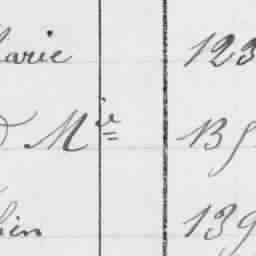 larie 123
D M^ie 139
hin 139